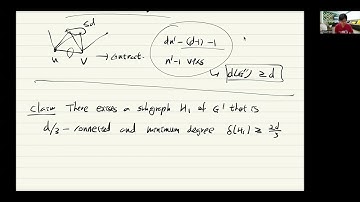 ≤d
u v → contract.
dn' - (d-1) - 1
n' - 1 vtxs
↳ d(G'') ≥ d
Claim There exists a subgraph H₁ of G' that is
d/3 - connected and minimum degree δ(H₁) ≥ 2d/3